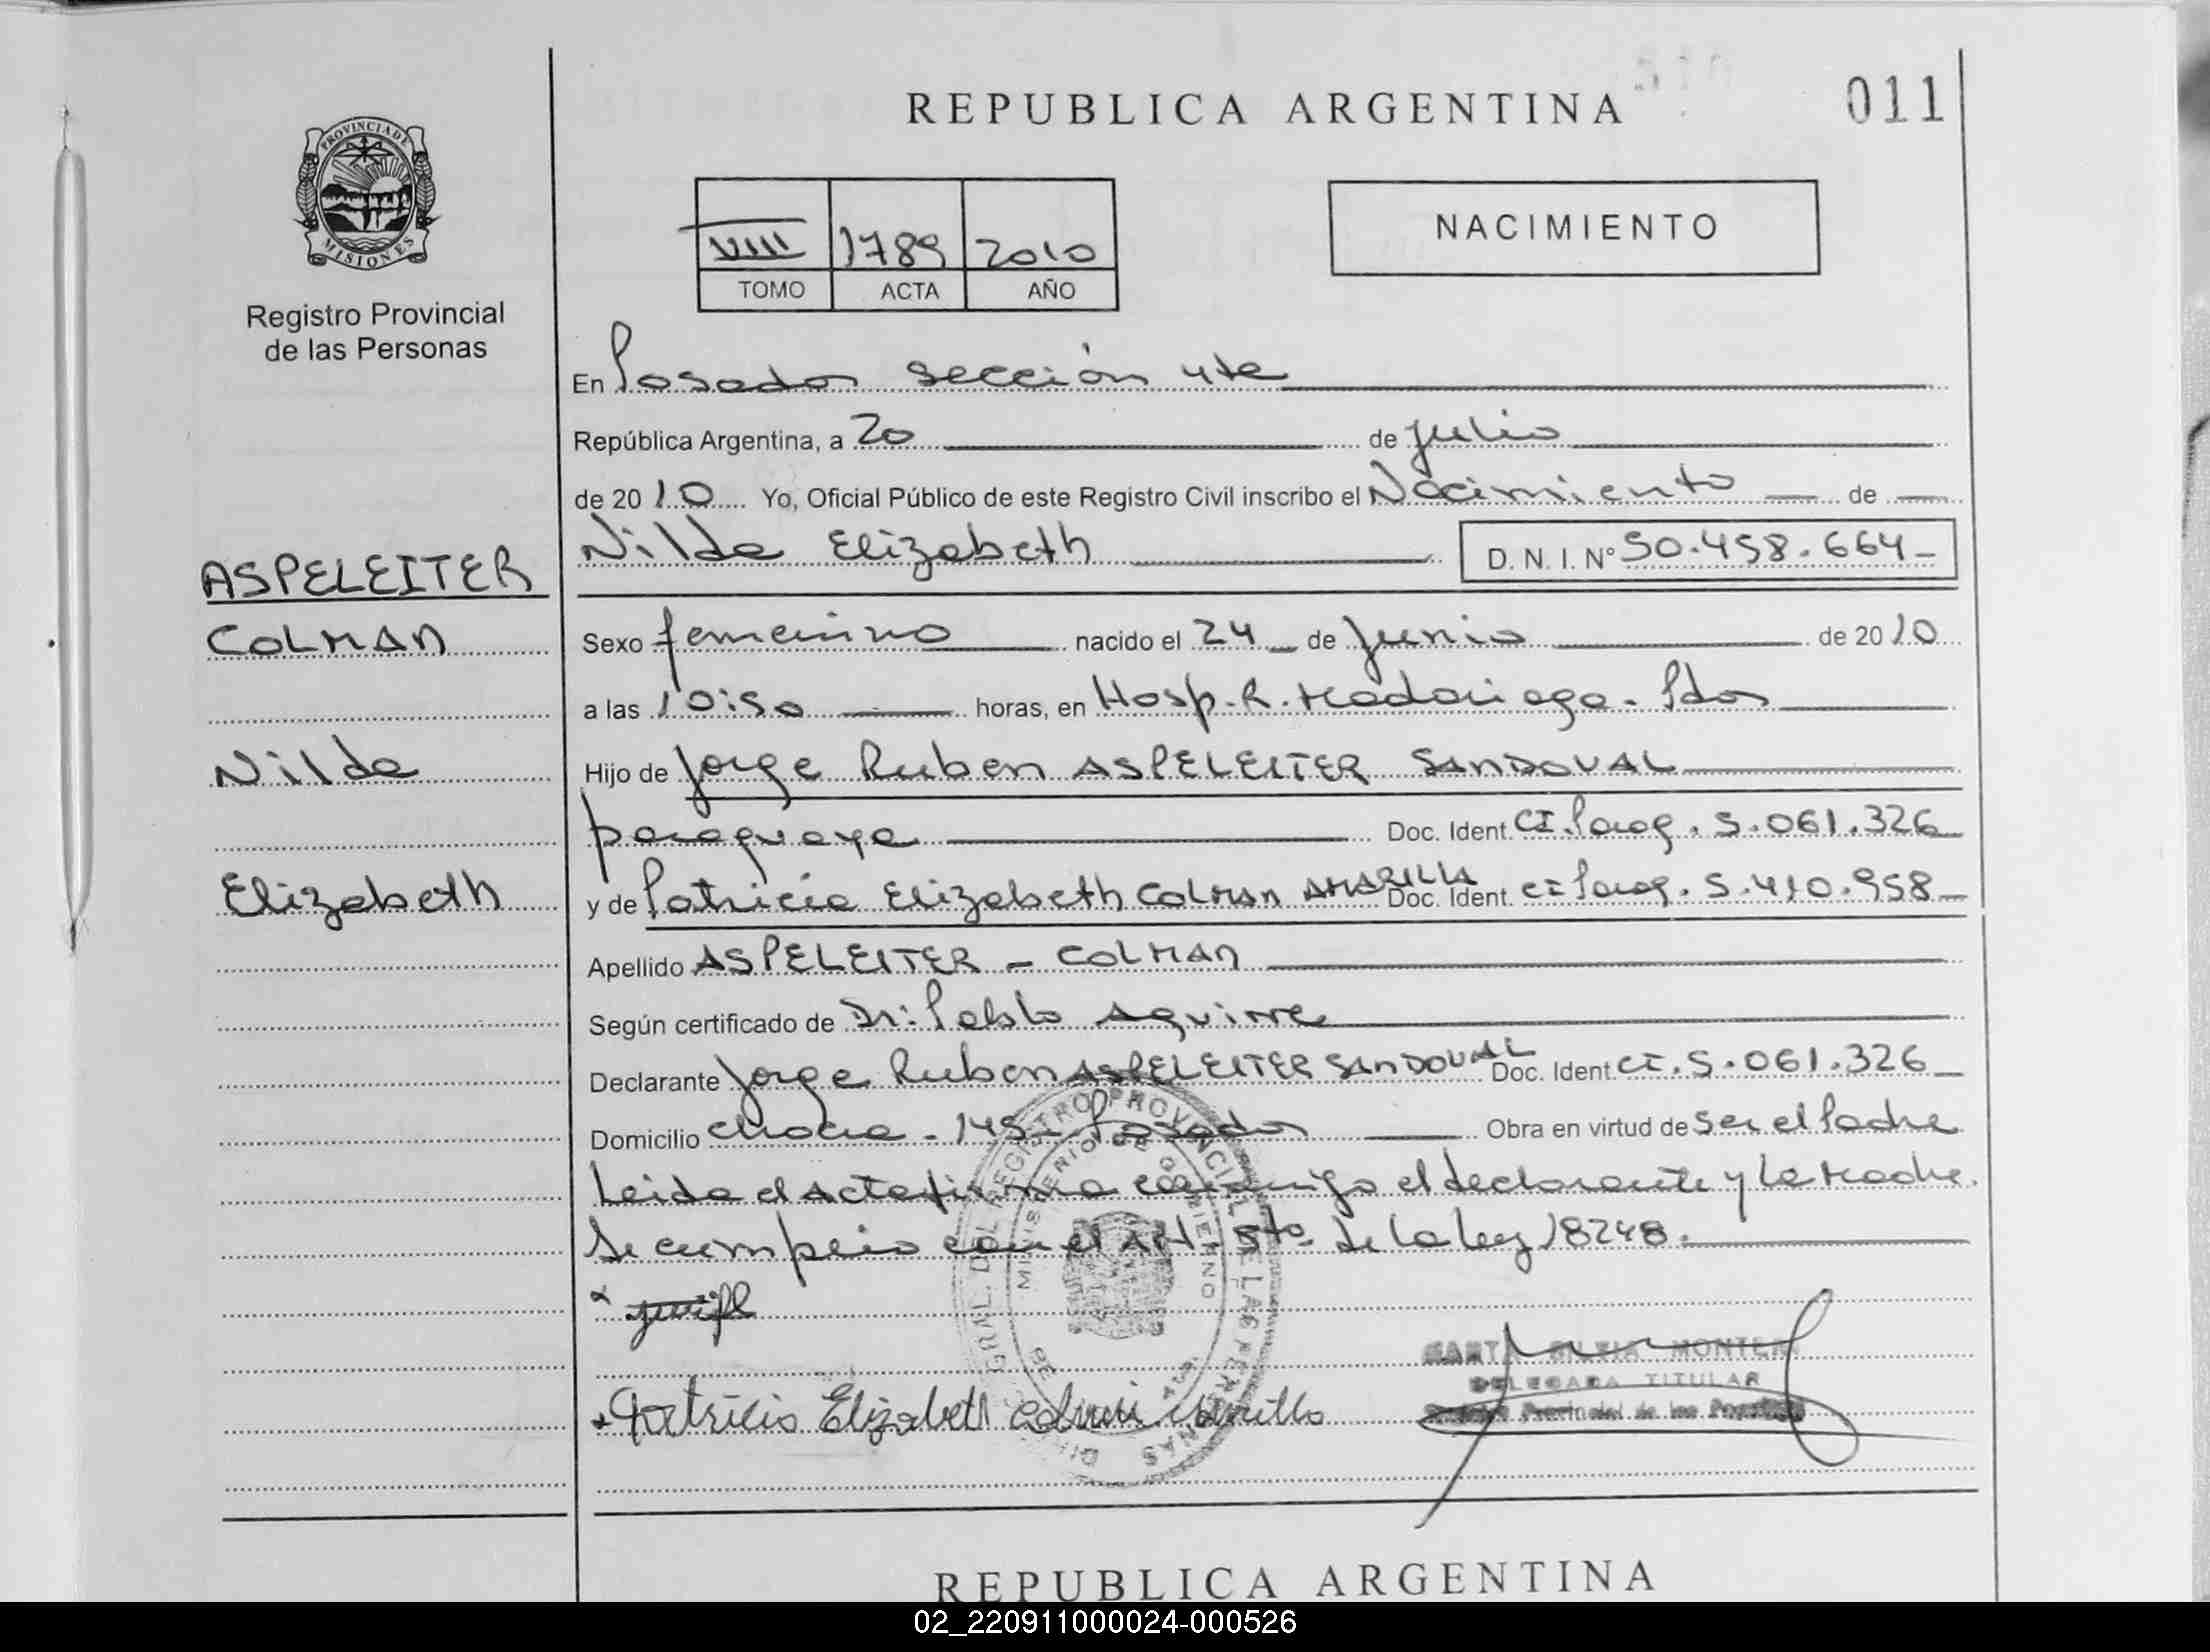 REPUBLICA ARGENTINA
011
PROVINCIA DE
MISIONES
Registro Provincial
de las Personas
VIII 1789 2010
TOMO ACTA AÑO
NACIMIENTO
En Posadas sección 4ta
República Argentina, a 20 de julio
de 2010 Yo, Oficial Público de este Registro Civil inscribo el Nacimiento de
Nilda Elizabeth D. N. I. Nº 50.458.664
ASPELEITER
COLMAN
Nilda
Elizabeth
Sexo femenino nacido el 24 de Junio de 2010
a las 10:50 horas, en Hosp. R. Madariaga. Pdas
Hijo de Jorge Ruben ASPELEITER SANDOVAL
paraguaya Doc. Ident. CI. Parag. 5.061.326
y de Patricia Elizabeth COLMAN AMARILLA Doc. Ident. CI Parag. 5.410.958
Apellido ASPELEITER - COLMAN
Según certificado de Dr: Pablo Aguirre
Declarante Jorge Ruben ASPELEITER SANDOVAL Doc. Ident. CI. 5.061.326
Domicilio chacra - 145 - Posadas Obra en virtud de ser el Padre
Leida el Acta firma conmigo el declarante y la Madre.
Se cumplio con el Art 5to. de la ley 18248.
Patricia Elizabeth
DELEGADA TITULAR
Provincial de las Personas
REGISTRO PROVINCIAL DE LAS PERSONAS
MINISTERIO DE GOBIERNO
REPUBLICA ARGENTINA
02_220911000024-000526